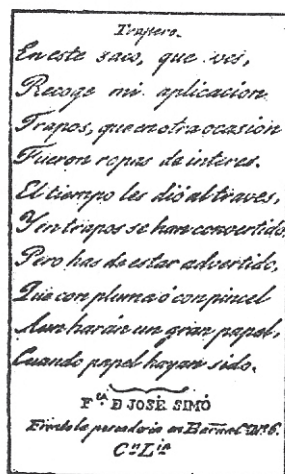 Trapero.
En este saco, que ves,
Recoge mi aplicacion
Trapos, que en otra ocasion
Fueron ropas de interes.
El tiempo les dió al traves,
Y en trapos se han convertido,
Pero has de estar advertido,
Que con pluma ó con pincel
Aun harán un gran papel,
Cuando papel hayan sido.
F.ca D JOSÉ SIMÓ
Frente la pescaderia en Barna C. Nº 6.